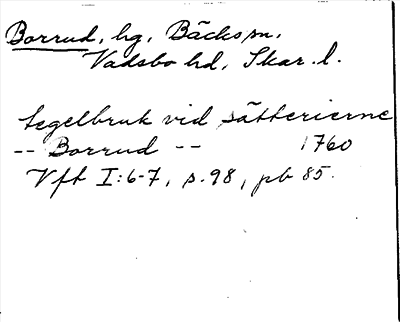 Borrud, hg, Bäcks sn.
Vadsbo hd, Skar. l.
tegelbruk vid sätterierne
-- Borrud -- 1760
Vft I:6-7, s. 98, pb 85.